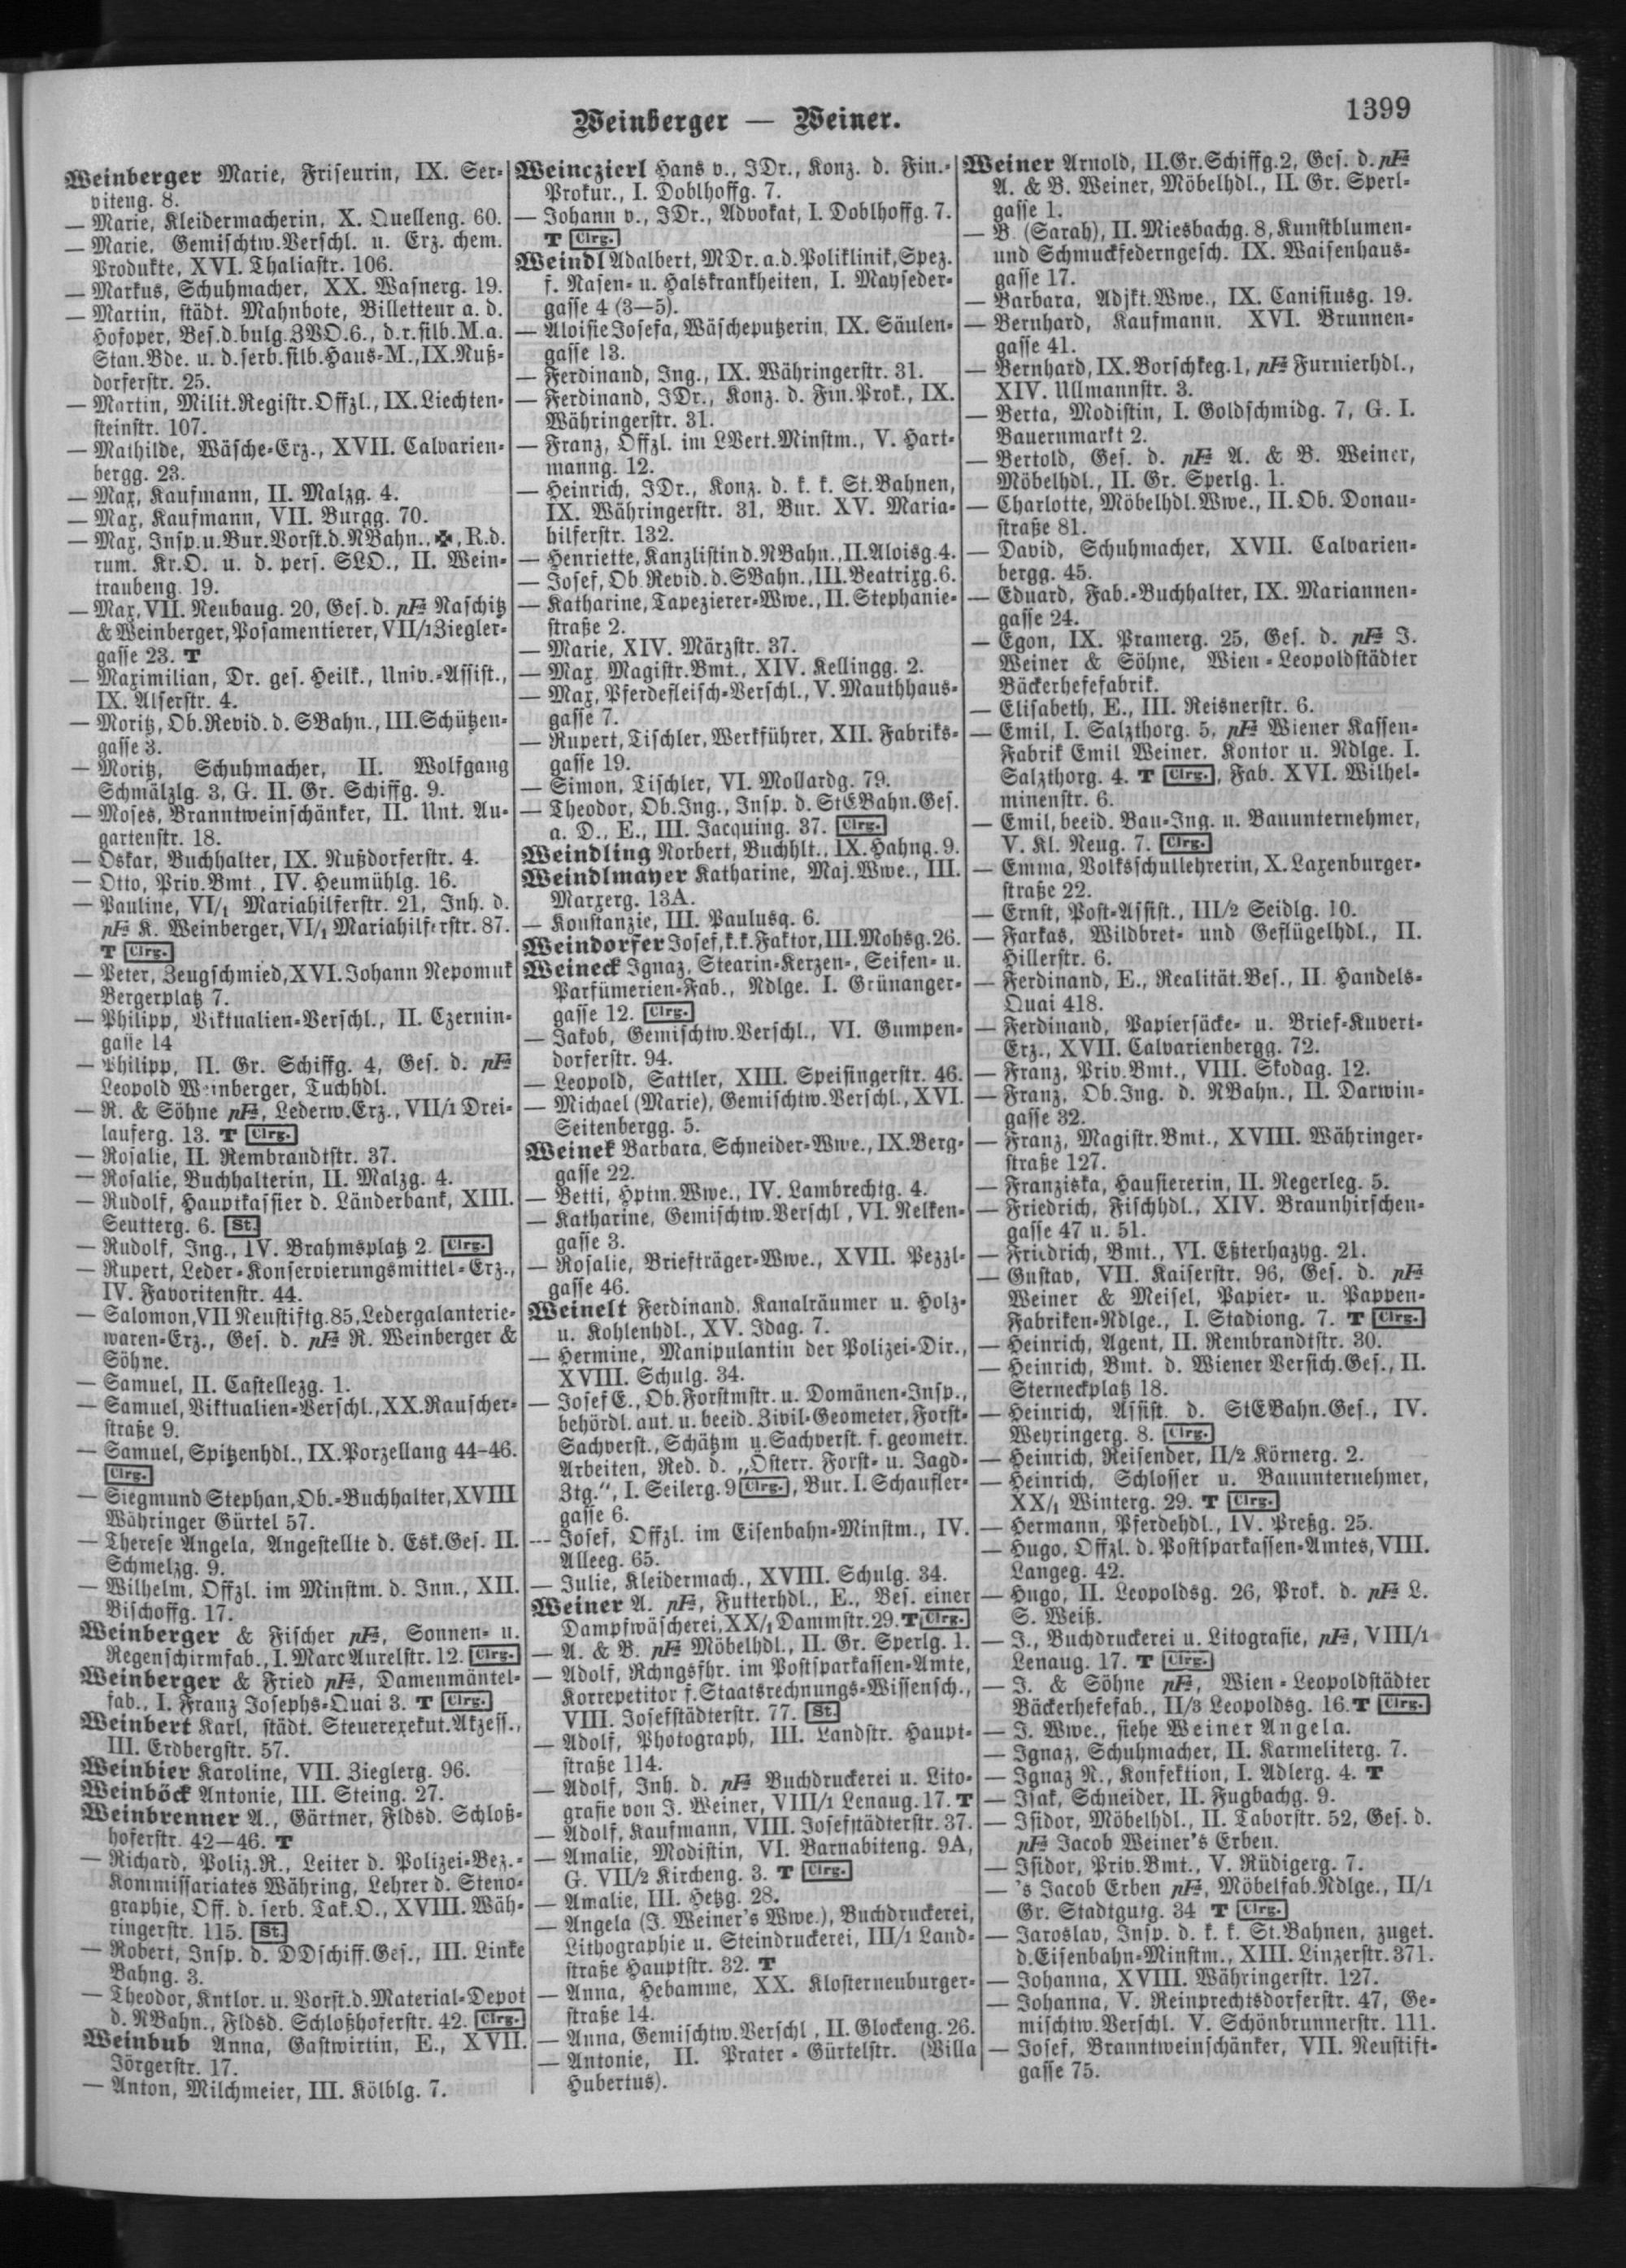 Weinberger — Weiner.
1399
Weinberger Marie, Friseurin, IX. Ser-
viteng. 8.
— Marie, Kleidermacherin, X. Quelleng. 60.
— Marie, Gemischtw.Verschl. u. Erz. chem.
Produkte, XVI. Thaliastr. 106.
— Markus, Schuhmacher, XX. Wasnerg. 19.
— Martin, städt. Mahnbote, Billetteur a. d.
Hofoper, Bes.d.bulg.ZVO.6., d.r.silb.M.a.
Stan.Bde. u. d.serb.silb.Haus-M., IX.Nuß-
dorferstr. 25.
— Martin, Milit.Registr.Offzl., IX.Liechten-
steinstr. 107.
— Mathilde, Wäsche-Erz., XVII. Calvarien-
bergg. 23.
— Max, Kaufmann, II. Malzg. 4.
— Max, Kaufmann, VII. Burgg. 70.
— Max, Insp.u.Bur.Vorst.d.NBahn., ✠, R.d.
rum. Kr.O. u. d. pers. SLO., II. Wein-
traubeng. 19.
— Max, VII. Neubaug. 20, Ges. d. pF Naschitz
& Weinberger, Posamentierer, VII/1 Ziegler-
gasse 23. T
— Maximilian, Dr. ges. Heilk., Univ.-Assist.,
IX. Alserstr. 4.
— Moritz, Ob.Revid. d. SBahn., III.Schützen-
gasse 3.
— Moritz, Schuhmacher, II. Wolfgang
Schmälzlg. 3, G. II. Gr. Schiffg. 9.
— Moses, Branntweinschänker, II. Unt. Au-
gartenstr. 18.
— Oskar, Buchhalter, IX. Nußdorferstr. 4.
— Otto, Priv.Bmt., IV. Heumühlg. 16.
— Pauline, VI/1 Mariahilferstr. 21, Inh. d.
pF K. Weinberger, VI/1 Mariahilferstr. 87.
T Clrg.
— Peter, Zeugschmied, XVI. Johann Nepomuk
Bergerplatz 7.
— Philipp, Viktualien-Verschl., II. Czernin-
gasse 14
— Philipp, II. Gr. Schiffg. 4, Ges. d. pF
Leopold Weinberger, Tuchhdl.
— R. & Söhne pF, Lederw.Erz., VII/1 Drei-
lauferg. 13. T Clrg.
— Rosalie, II. Rembrandtstr. 37.
— Rosalie, Buchhalterin, II. Malzg. 4.
— Rudolf, Hauptkassier d. Länderbank, XIII.
Seutterg. 6. St.
— Rudolf, Ing., IV. Brahmsplatz 2. Clrg.
— Rupert, Leder-Konservierungsmittel-Erz.,
IV. Favoritenstr. 44.
— Salomon, VII Neustiftg. 85, Ledergalanterie-
waren-Erz., Ges. d. pF R. Weinberger &
Söhne.
— Samuel, II. Castellezg. 1.
— Samuel, Viktualien-Verschl., XX.Rauscher-
straße 9.
— Samuel, Spitzenhdl., IX.Porzellang 44-46.
Clrg.
— Siegmund Stephan, Ob.-Buchhalter, XVIII
Währinger Gürtel 57.
— Therese Angela, Angestellte d. Esk.Ges. II.
Schmelzg. 9.
— Wilhelm, Offzl. im Minstm. d. Inn., XII.
Bischoffg. 17.
Weinberger & Fischer pF, Sonnen- u.
Regenschirmfab., I. Marc Aurelstr. 12. Clrg.
Weinberger & Fried pF, Damenmäntel-
fab., I. Franz Josephs-Quai 3. T Clrg.
Weinbert Karl, städt. Steuerexekut.Akzess.,
III. Erdbergstr. 57.
Weinbier Karoline, VII. Zieglerg. 96.
Weinböck Antonie, III. Steing. 27.
Weinbrenner A., Gärtner, Fldsd. Schloß-
hoferstr. 42—46. T
— Richard, Poliz.R., Leiter d. Polizei-Bez.-
Kommissariates Währing, Lehrer d. Steno-
graphie, Off. d. serb. Tak.O., XVIII. Wäh-
ringerstr. 115. St.
— Robert, Insp. d. DDschiff.Ges., III. Linke
Bahng. 3.
— Theodor, Kntlor. u. Vorst.d. Material-Depot
d. NBahn., Fldsd. Schloßhoferstr. 42. Clrg.
Weinbub Anna, Gastwirtin, E., XVII.
Jörgerstr. 17.
— Anton, Milchmeier, III. Kölblg. 7.
Weinczierl Hans v., JDr., Konz. d. Fin.-
Prokur., I. Doblhoffg. 7.
— Johann v., JDr., Advokat, I. Doblhoffg. 7.
T Clrg.
Weindl Adalbert, MDr. a.d. Poliklinik, Spez.
f. Nasen- u. Halskrankheiten, I. Mayseder-
gasse 4 (3—5).
— Aloisie Josefa, Wäscheputzerin, IX. Säulen-
gasse 13.
— Ferdinand, Ing., IX. Währingerstr. 31.
— Ferdinand, JDr., Konz. d. Fin.Prok., IX.
Währingerstr. 31.
— Franz, Offzl. im LVert.Minstm., V. Hart-
manng. 12.
— Heinrich, JDr., Konz. d. k. k. St.Bahnen,
IX. Währingerstr. 31, Bur. XV. Maria-
hilferstr. 132.
— Henriette, Kanzlistin d. NBahn., II.Aloisg. 4.
— Josef, Ob.Revid. d. SBahn., III.Beatrixg. 6.
— Katharine, Tapezierer-Wwe., II. Stephanie-
straße 2.
— Marie, XIV. Märzstr. 37.
— Max, Magistr.Bmt., XIV. Kellingg. 2.
— Max, Pferdefleisch-Verschl., V. Mauthhaus-
gasse 7.
— Rupert, Tischler, Werkführer, XII. Fabriks-
gasse 19.
— Simon, Tischler, VI. Mollardg. 79.
— Theodor, Ob.Ing., Insp. d. StEBahn.Ges.
a. D., E., III. Jacquing. 37. Clrg.
Weindling Norbert, Buchhlt., IX. Hahng. 9.
Weindlmayer Katharine, Maj.Wwe., III.
Marxerg. 13A.
— Konstanzie, III. Paulusg. 6.
Weindorfer Josef, k.k.Faktor, III.Mohsg.26.
Weineck Ignaz, Stearin-Kerzen-, Seifen- u.
Parfümerien-Fab., Ndlge. I. Grünanger-
gasse 12. Clrg.
— Jakob, Gemischtw.Verschl., VI. Gumpen-
dorferstr. 94.
— Leopold, Sattler, XIII. Speisingerstr. 46.
— Michael (Marie), Gemischtw.Verschl., XVI.
Seitenbergg. 5.
Weinek Barbara, Schneider-Wwe., IX.Berg-
gasse 22.
— Betti, Hptm.Wwe., IV. Lambrechtg. 4.
— Katharine, Gemischtw.Verschl, VI. Nelken-
gasse 3.
— Rosalie, Briefträger-Wwe., XVII. Pezzl-
gasse 46.
Weinelt Ferdinand, Kanalräumer u. Holz-
u. Kohlenhdl., XV. Idag. 7.
— Hermine, Manipulantin der Polizei-Dir.,
XVIII. Schulg. 34.
— Josef E., Ob.Forstmstr. u. Domänen-Insp.,
behördl. aut. u. beeid. Zivil-Geometer, Forst-
Sachverst., Schätzm u. Sachverst. f. geometr.
Arbeiten, Red. d. „Österr. Forst- u. Jagd-
Ztg.", I. Seilerg. 9 Clrg., Bur. I. Schaufler-
gasse 6.
— Josef, Offzl. im Eisenbahn-Minstm., IV.
Alleeg. 65.
— Julie, Kleidermach., XVIII. Schulg. 34.
Weiner A. pF, Futterhdl., E., Bes. einer
Dampfwäscherei, XX/1 Dammstr. 29. T Clrg.
— A. & B. pF Möbelhdl., II. Gr. Sperlg. 1.
— Adolf, Rchngsfhr. im Postsparkassen-Amte,
Korrepetitor f. Staatsrechnungs-Wissensch.,
VIII. Josefstädterstr. 77. St.
— Adolf, Photograph, III. Landstr. Haupt-
straße 114.
— Adolf, Inh. d. pF Buchdruckerei u. Lito-
grafie von J. Weiner, VIII/1 Lenaug. 17. T
— Adolf, Kaufmann, VIII. Josefstädterstr. 37.
— Amalie, Modistin, VI. Barnabiteng. 9A,
G. VII/2 Kircheng. 3. T Clrg.
— Amalie, III. Hetzg. 28.
— Angela (J. Weiner's Wwe.), Buchdruckerei,
Lithographie u. Steindruckerei, III/1 Land-
straße Hauptstr. 32. T
— Anna, Hebamme, XX. Klosterneuburger-
straße 14.
— Anna, Gemischtw.Verschl, II. Glockeng. 26.
— Antonie, II. Prater-Gürtelstr. (Villa
Hubertus).
Weiner Arnold, II.Gr.Schiffg.2, Ges. d. pF
A. & B. Weiner, Möbelhdl., II. Gr. Sperl-
gasse 1.
— B. (Sarah), II. Miesbachg. 8, Kunstblumen-
und Schmuckfederngesch. IX. Waisenhaus-
gasse 17.
— Barbara, Adjkt.Wwe., IX. Canisiusg. 19.
— Bernhard, Kaufmann, XVI. Brunnen-
gasse 41.
— Bernhard, IX. Borschkeg. 1, pF Furnierhdl.,
XIV. Ullmannstr. 3.
— Berta, Modistin, I. Goldschmidg. 7, G. I.
Bauernmarkt 2.
— Bertold, Ges. d. pF A. & B. Weiner,
Möbelhdl., II. Gr. Sperlg. 1.
— Charlotte, Möbelhdl.Wwe., II. Ob. Donau-
straße 81.
— David, Schuhmacher, XVII. Calvarien-
bergg. 45.
— Eduard, Fab.-Buchhalter, IX. Mariannen-
gasse 24.
— Egon, IX. Pramerg. 25, Ges. d. pF J.
Weiner & Söhne, Wien-Leopoldstädter
Bäckerhefefabrik.
— Elisabeth, E., III. Reisnerstr. 6.
— Emil, I. Salzthorg. 5, pF Wiener Kassen-
Fabrik Emil Weiner, Kontor u. Ndlge. I.
Salzthorg. 4. T Clrg., Fab. XVI. Wilhel-
minenstr. 6.
— Emil, beeid. Bau-Ing. u. Bauunternehmer,
V. Kl. Neug. 7. Clrg.
— Emma, Volksschullehrerin, X. Laxenburger-
straße 22.
— Ernst, Post-Assist., III/2 Seidlg. 10.
— Farkas, Wildbret- und Geflügelhdl., II.
Hillerstr. 6.
— Ferdinand, E., Realität.Bes., II. Handels-
Quai 418.
— Ferdinand, Papiersäcke- u. Brief-Kuvert-
Erz., XVII. Calvarienbergg. 72.
— Franz, Priv.Bmt., VIII. Skodag. 12.
— Franz, Ob.Ing. d. NBahn., II. Darwin-
gasse 32.
— Franz, Magistr.Bmt., XVIII. Währinger-
straße 127.
— Franziska, Hausiererin, II. Negerleg. 5.
— Friedrich, Fischhdl., XIV. Braunhirschen-
gasse 47 u. 51.
— Friedrich, Bmt., VI. Eßterhazyg. 21.
— Gustav, VII. Kaiserstr. 96, Ges. d. pF
Weiner & Meisel, Papier- u. Pappen-
Fabriken-Ndlge., I. Stadiong. 7. T Clrg.
— Heinrich, Agent, II. Rembrandtstr. 30.
— Heinrich, Bmt. d. Wiener Versich.Ges., II.
Sterneckplatz 18.
— Heinrich, Assist. d. StEBahn.Ges., IV.
Weyringerg. 8. Clrg.
— Heinrich, Reisender, II/2 Körnerg. 2.
— Heinrich, Schlosser u. Bauunternehmer,
XX/1 Winterg. 29. T Clrg.
— Hermann, Pferdehdl., IV. Preßg. 25.
— Hugo, Offzl. d. Postsparkassen-Amtes, VIII.
Langeg. 42.
— Hugo, II. Leopoldsg. 26, Prok. d. pF L.
S. Weiß.
— J., Buchdruckerei u. Litografie, pF, VIII/1
Lenaug. 17. T Clrg.
— J. & Söhne pF, Wien-Leopoldstädter
Bäckerhefefab., II/3 Leopoldsg. 16. T Clrg.
— J. Wwe., siehe Weiner Angela.
— Ignaz, Schuhmacher, II. Karmeliterg. 7.
— Ignaz N., Konfektion, I. Adlerg. 4. T
— Isak, Schneider, II. Fugbachg. 9.
— Isidor, Möbelhdl., II. Taborstr. 52, Ges. d.
pF Jacob Weiner's Erben.
— Isidor, Priv.Bmt., V. Rüdigerg. 7.
— 's Jacob Erben pF, Möbelfab.Ndlge., II/1
Gr. Stadtgutg. 34 T Clrg.
— Jaroslav, Insp. d. k. k. St.Bahnen, zuget.
d.Eisenbahn-Minstm., XIII. Linzerstr. 371.
— Johanna, XVIII. Währingerstr. 127.
— Johanna, V. Reinprechtsdorferstr. 47, Ge-
mischtw.Verschl. V. Schönbrunnerstr. 111.
— Josef, Branntweinschänker, VII. Neustift-
gasse 75.